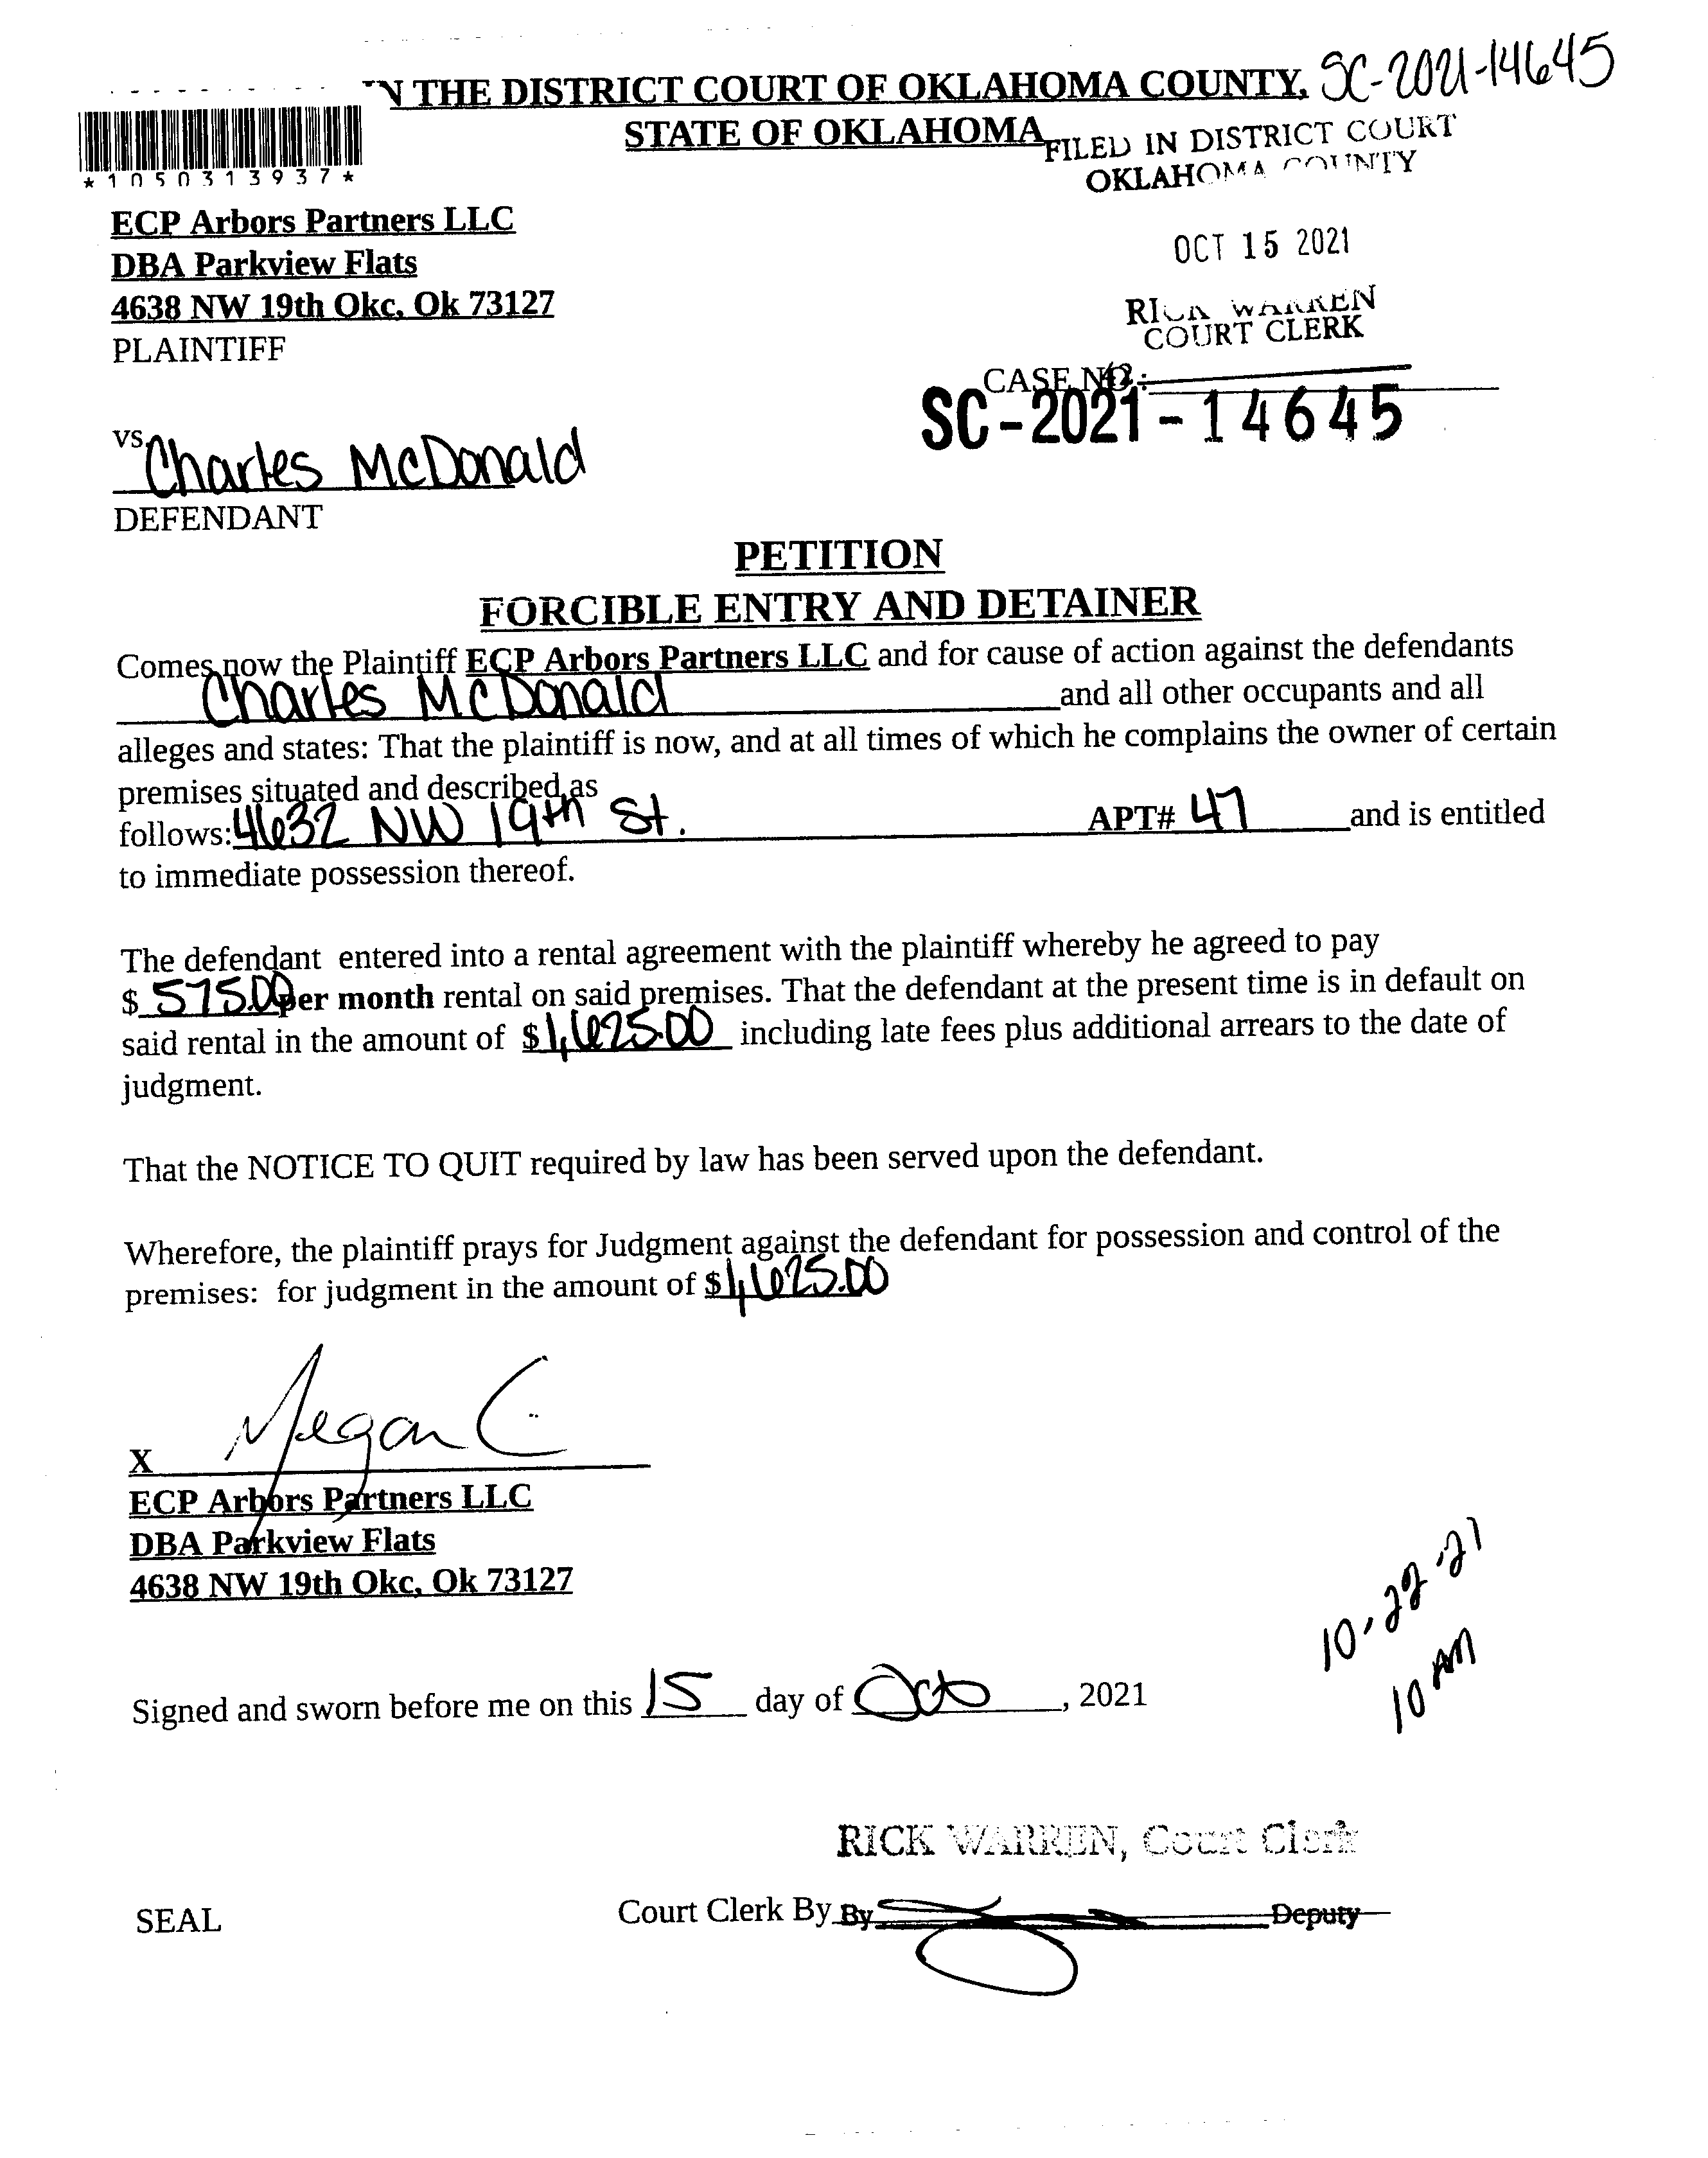 IN THE DISTRICT COURT OF OKLAHOMA COUNTY, SC-2021-14645
STATE OF OKLAHOMA
FILED IN DISTRICT COURT
OKLAHOMA COUNTY
*1050313937*
ECP Arbors Partners LLC
DBA Parkview Flats
4638 NW 19th Okc, Ok 73127
PLAINTIFF
OCT 15 2021
RICK WARREN
COURT CLERK
CASE NO.:
42
SC-2021-14645
vs.
Charles McDonald
DEFENDANT
PETITION
FORCIBLE ENTRY AND DETAINER
Comes now the Plaintiff ECP Arbors Partners LLC and for cause of action against the defendants
Charles McDonald and all other occupants and all
alleges and states: That the plaintiff is now, and at all times of which he complains the owner of certain
premises situated and described as
follows: 4632 NW 19th St. APT# 47 and is entitled
to immediate possession thereof.
The defendant entered into a rental agreement with the plaintiff whereby he agreed to pay
$ 575.00 per month rental on said premises. That the defendant at the present time is in default on
said rental in the amount of $1,625.00 including late fees plus additional arrears to the date of
judgment.
That the NOTICE TO QUIT required by law has been served upon the defendant.
Wherefore, the plaintiff prays for Judgment against the defendant for possession and control of the
premises: for judgment in the amount of $1,625.00
X Megan C
ECP Arbors Partners LLC
DBA Parkview Flats
4638 NW 19th Okc, Ok 73127
10-22-21
10 AM
Signed and sworn before me on this 15 day of Oct, 2021
RICK WARREN, Court Clerk
SEAL Court Clerk By By Deputy